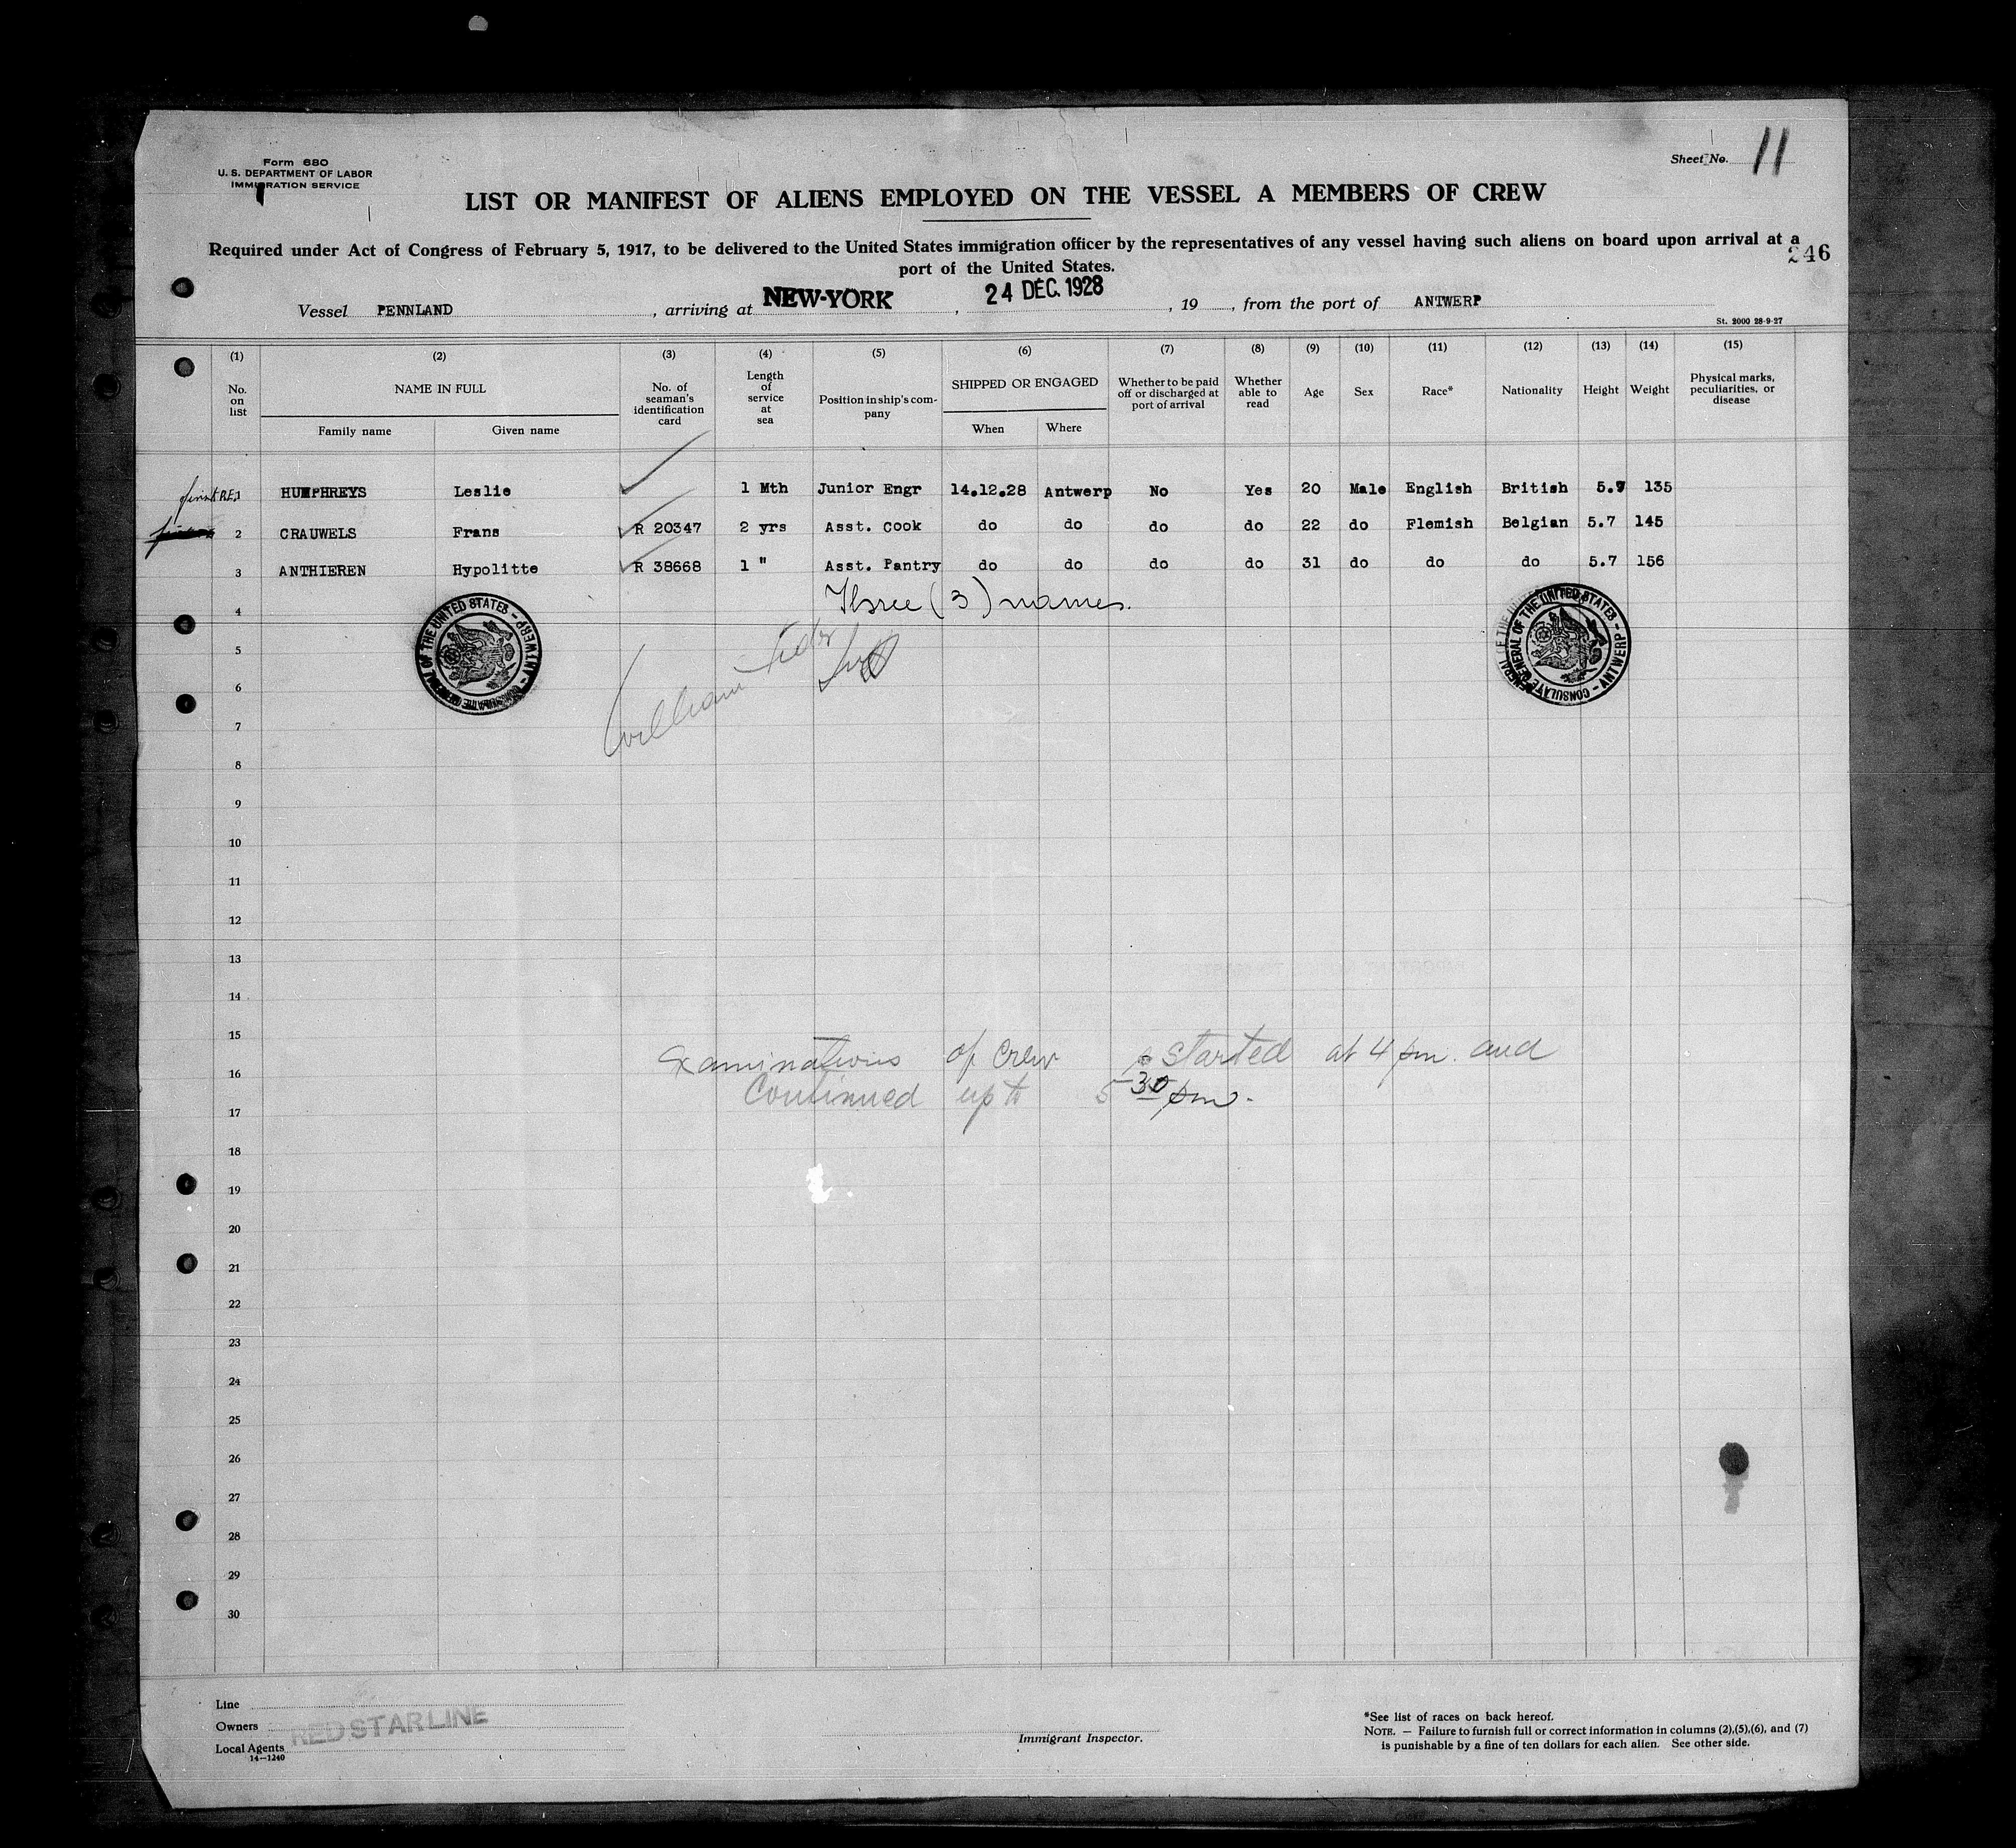 Form 680
U. S. DEPARTMENT OF LABOR
IMMIGRATION SERVICE
Sheet No. 11
LIST OR MANIFEST OF ALIENS EMPLOYED ON THE VESSEL A MEMBERS OF CREW
Required under Act of Congress of February 5, 1917, to be delivered to the United States immigration officer by the representatives of any vessel having such aliens on board upon arrival at a
port of the United States.
246
Vessel PENNLAND, arriving at NEW-YORK, 24 DEC. 1928, 19, from the port of ANTWERP
St. 2000 28-9-27
(1) (2) (3) (4) (5) (6) (7) (8) (9) (10) (11) (12) (13) (14) (15)
No. on list NAME IN FULL Family name Given name No. of seaman's identification card Length of service at sea Position in ship's company SHIPPED OR ENGAGED When Where Whether to be paid off or discharged at port of arrival Whether able to read Age Sex Race* Nationality Height Weight Physical marks, peculiarities, or disease
1 HUMPHREYS Leslie 1 Mth Junior Engr 14.12.28 Antwerp No Yes 20 Male English British 5.7 135
2 CRAUWELS Frans R 20347 2 yrs Asst. Cook do do do do 22 do Flemish Belgian 5.7 145
3 ANTHIEREN Hypolitte R 38668 1 " Asst. Pantry do do do do 31 do do do 5.7 156
4 Three (3) names.
CONSULATE GENERAL OF THE UNITED STATES - ANTWERP -
CONSULATE GENERAL OF THE UNITED STATES - ANTWERP -
5
6
William
7
8
9
10
11
12
13
14
15
Examinations of Crew started at 4 pm. and
16
Continued up to 5 30 pm.
17
18
19
20
21
22
23
24
25
26
27
28
29
30
Line
Owners RED STAR LINE
Local Agents
14-1240
Immigrant Inspector.
*See list of races on back hereof.
NOTE. — Failure to furnish full or correct information in columns (2),(5),(6), and (7)
is punishable by a fine of ten dollars for each alien. See other side.